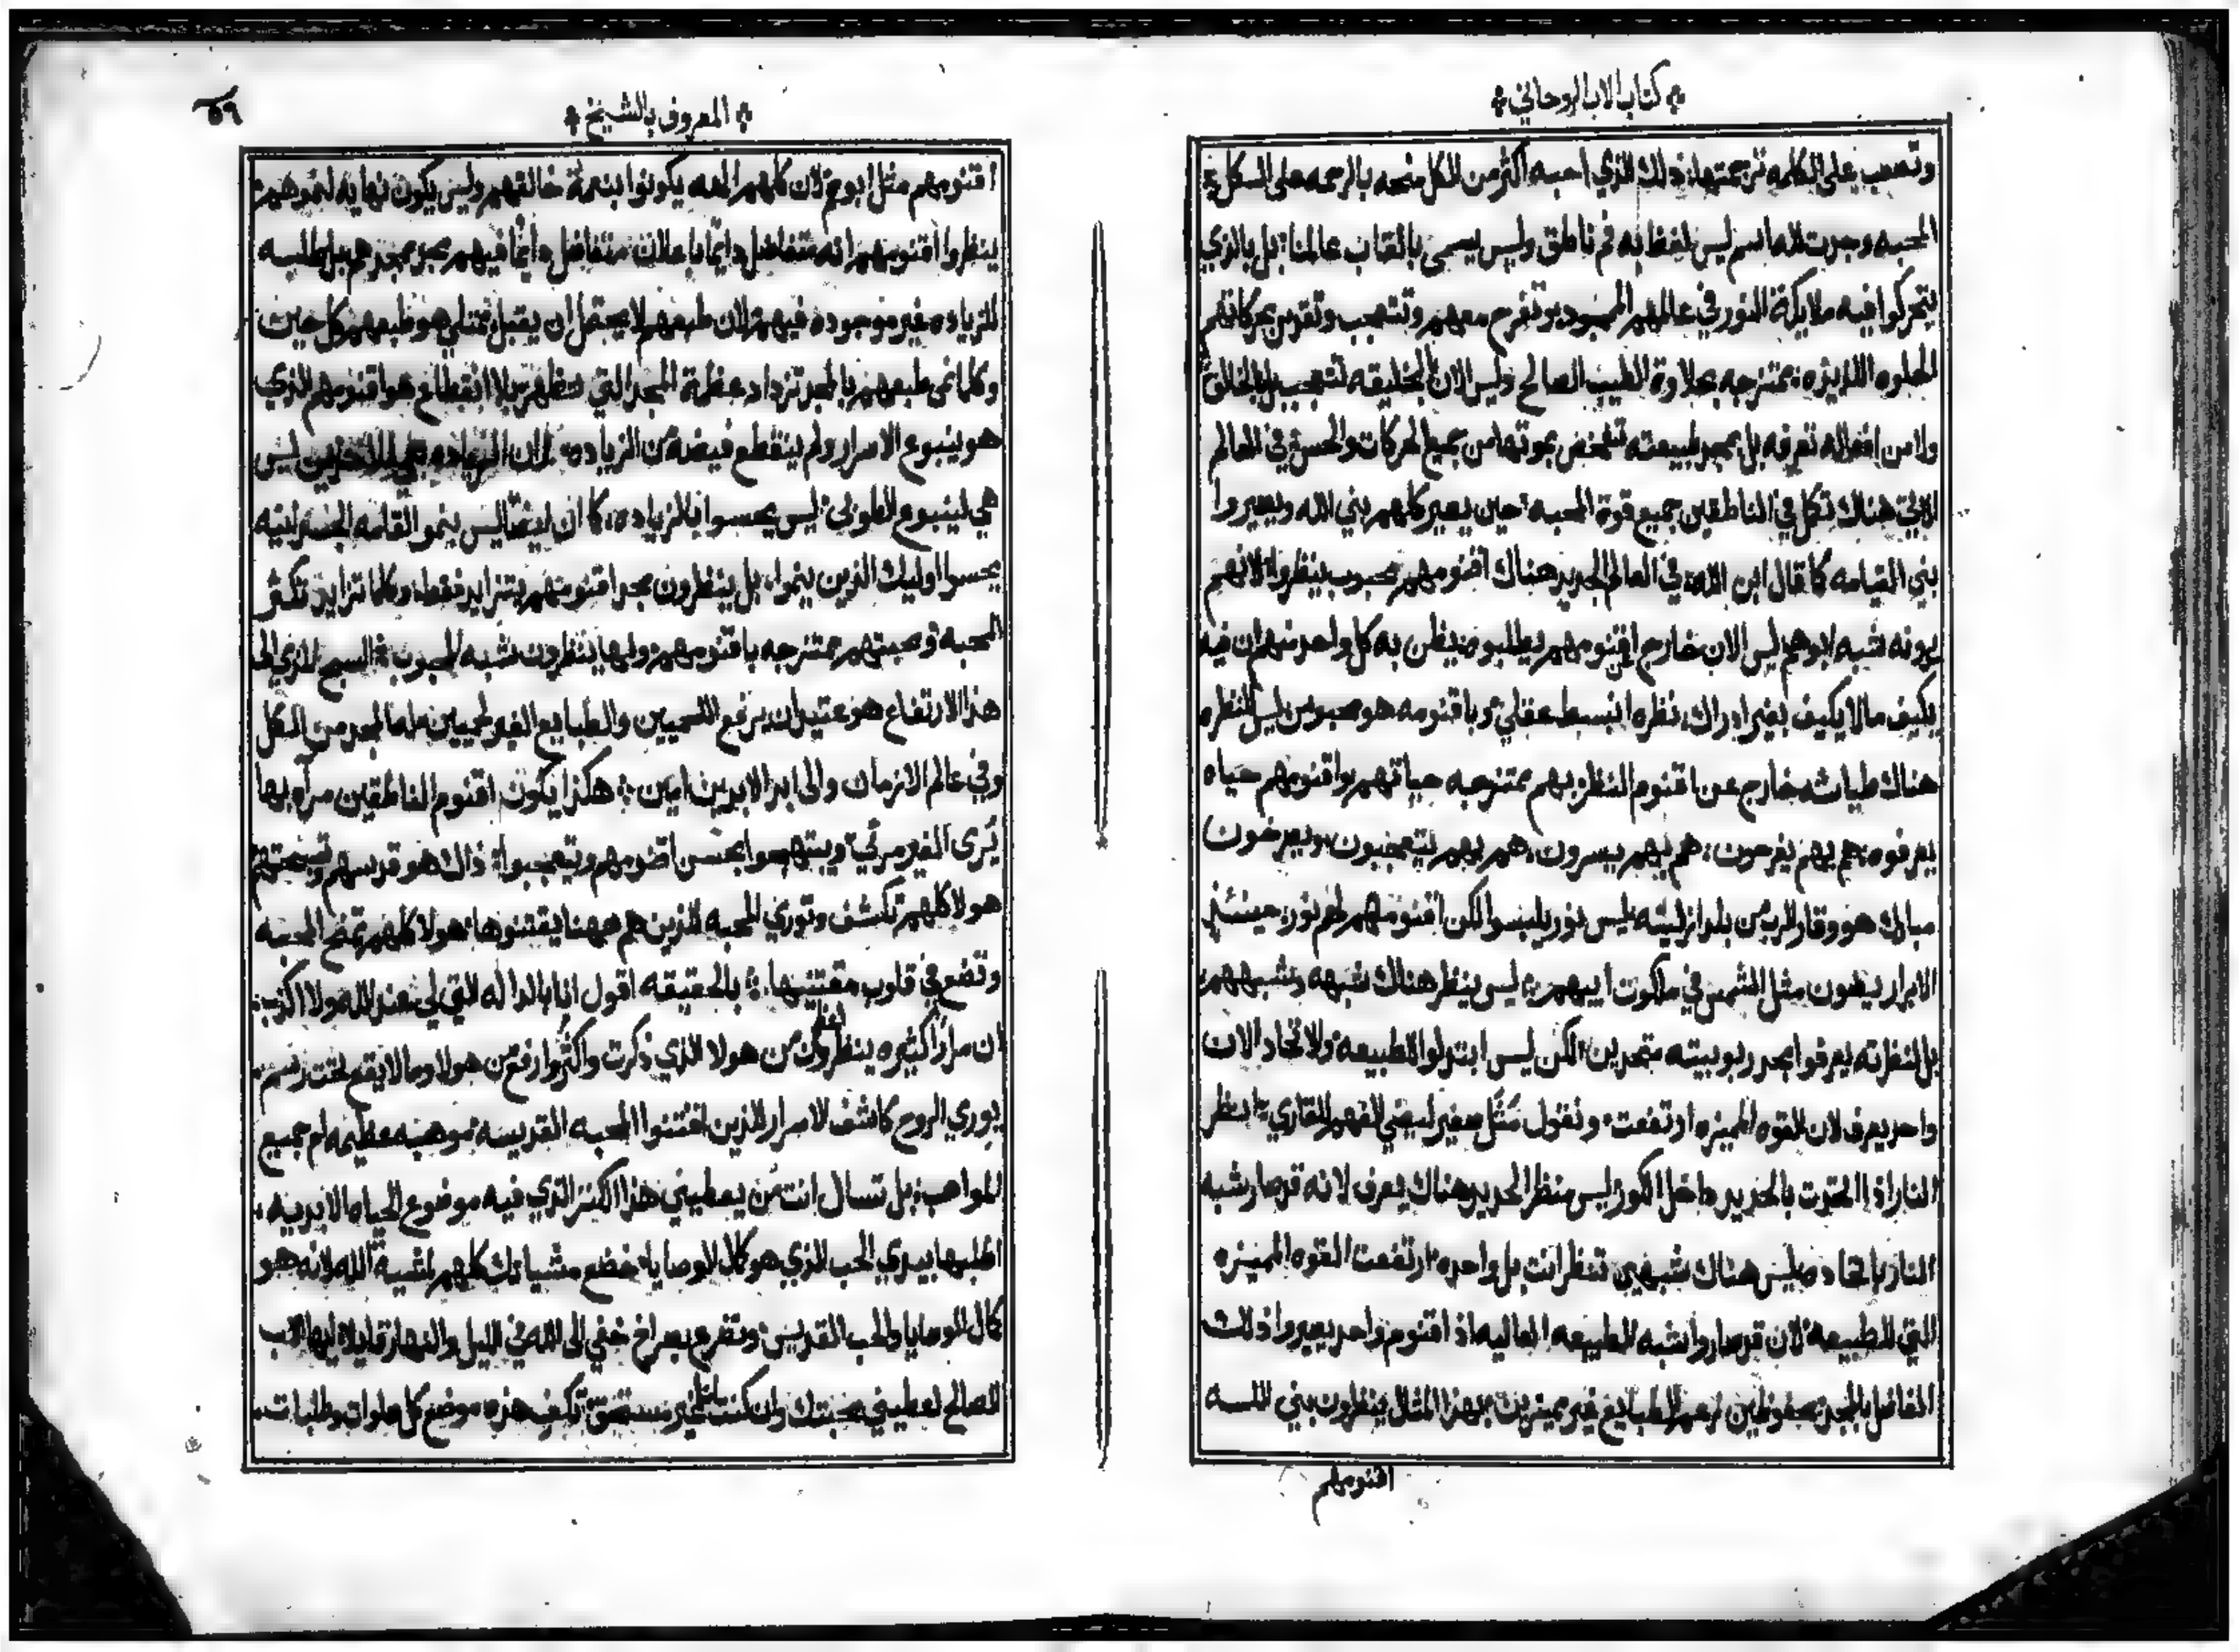 كتاب الاب الروحاني
وتصعب على الكلمه ترجمتها ذلك الذي احبه اكثر من الكل منحه بالرحمه على الكل
المحبه وجرت له اسم ليس لفظ به فم ناطق وليس يسمى بالقاب عالمنا بل بالذي
يتحركوا فيه ملايكة النور في عالمهم وتفرح معهم وتتعجب وتقدس بحركاتهم
الحلوه اللذيذه ممتزجه بحلاوة الطيب الصالح وليس الان الخليقه تتعجب بل بالخالق
ولا من افعاله تعرفه بل بمجد طبيعته تغمض بموتها من جميع الحركات والحس في العالم
هناك تكمل في الناطقين جميع قوة المحبه حين يصير كلهم بني الله ويصيروا
بني القيامه كما قال ابن الله في العالم الجديد هناك اقنومهم محبوب ينظروا لانهم
يرونه شبه ابوهم ليس الان خارج اقنومهم يطلبوه يظن به كل واحد منهم ان فيه
يكيف مالا يكيف بغير ادراك نظره انبسط عقلي وباقنومه هو محبوس ليس للنظره
هناك خارج عن اقنوم النظر بهم ممتزجه حياتهم واقنومهم حياه
يعرفوه هم بهم يفرحون هم بهم يسرون هم بهم يتعجبون ويعرفون
مبارك هو وقار الرب من بلد ازليته ليس نور يلبسوا لكن اقنومهم لهم نور حينئذ
الابرار يضون مثل الشمس في ملكوت ابيهم ليس ينظر هناك شبهه وشبههم
بل لنظرته يعرفوا مجد ربوبيته متحدين لكن ليس ابتدلوا الطبيعه ولا تحاد الان
واحد يعرف لان القوه المميزه ارتفعت ونقول مثل صغير ليضي لفهم القاري انظر
النار اذا اتحدت بالحديد داخل الكور ليس منظر الحديد هناك يعرف لانه قد صار شبه
النار باتحاده وليس هناك شبهين تنظر انت بل واحده ارتفعت القوه المميزه
التي للطبيعه لان قد صاروا شبه الطبيعه العاليه اذ اقنوم واحد يصيروا ذلك
الفاضل بالمجد محفوظين لهم الطبايع غير مميزين بهذا المثال ينظرون بني الله
اقنومهم
المعروف بالشيخ
٥٩
اقنومهم مثل ابوهم لان كلهم الهه يكونوا بنعمة خالقهم وليس يكون نهايه لنموهم
ينظروا اقنومهم انه متفاضل دايما باعلان متفاضل دايما فيهم بل طلبه
للزياده غير موجوده فيهم لان طبعهم لا يحتمل ان يقبل ممتلي هو طبعهم كل حين
وكلما نمى طبعهم بالمجد تزداد عظمة المجد التي تظهر بلا انقطاع هو اقنومهم الذي
هو ينبوع الاسرار ولم ينقطع فيضه من الزياده ليس
هي لينبوع الطوبى ليس يحسوا بالزياده كما ان ايضا ليس ينمو القامه الجسدانيه
يحسوا اوليك الذين ينموا بل ينظرون مجد اقنومهم يتزايد فقط وكلما تزايد تكثر
المحبه ومحبتهم ممتزجه باقنومهم ولها ينظرون شبه المحبوب السبح للذي الى
هذا الارتفاع هو عتيد ان يرفع اللحميين والطبايع الغير لحميين له المجد من الكل
وفي عالم الازمان والى ابد الابدين امين هكذا يكون اقنوم الناطقين مرآه بها
يرى الغير مرئي ويبتهجوا بحسن اقنومهم ويتعجبوا ذاك هو قدسهم وتسبحتهم
هولا كلهم تكشف وتوري المحبه للذين هم ههنا يقتنوها هولا كلهم تمنح المحبه
وتضع في قلوب مقتنيها بالحقيقه اقول انا بالداله التي لي عند الله ولا اكذب
ان مرارا كثيره ينظرون اعظم من هولا الذي ذكرت واكثر وارفع من هولا وما لا يقع تحت رسم
يوري الروح كاشف الاسرار للذين اقتنوا المحبه القديسه موهبه عظيمه ام جميع
المواهب بل تسال انت من يعطيني هذا الكنز الذي فيه موضوع الحياه الابديه
اطلبها بيدي الحب الذي هو كمال الوصايا اخضع مشياتك كلهم لمشية الله لانه هو
كمال الوصايا والحب القديس وتضرع بصراخ خفي الى الله في الليل والنهار قايلا ايها الاب
الصالح اعطيني محبتك وان كنت انا غير مستحق تكون هذه موضع كل صلوات وطلبات